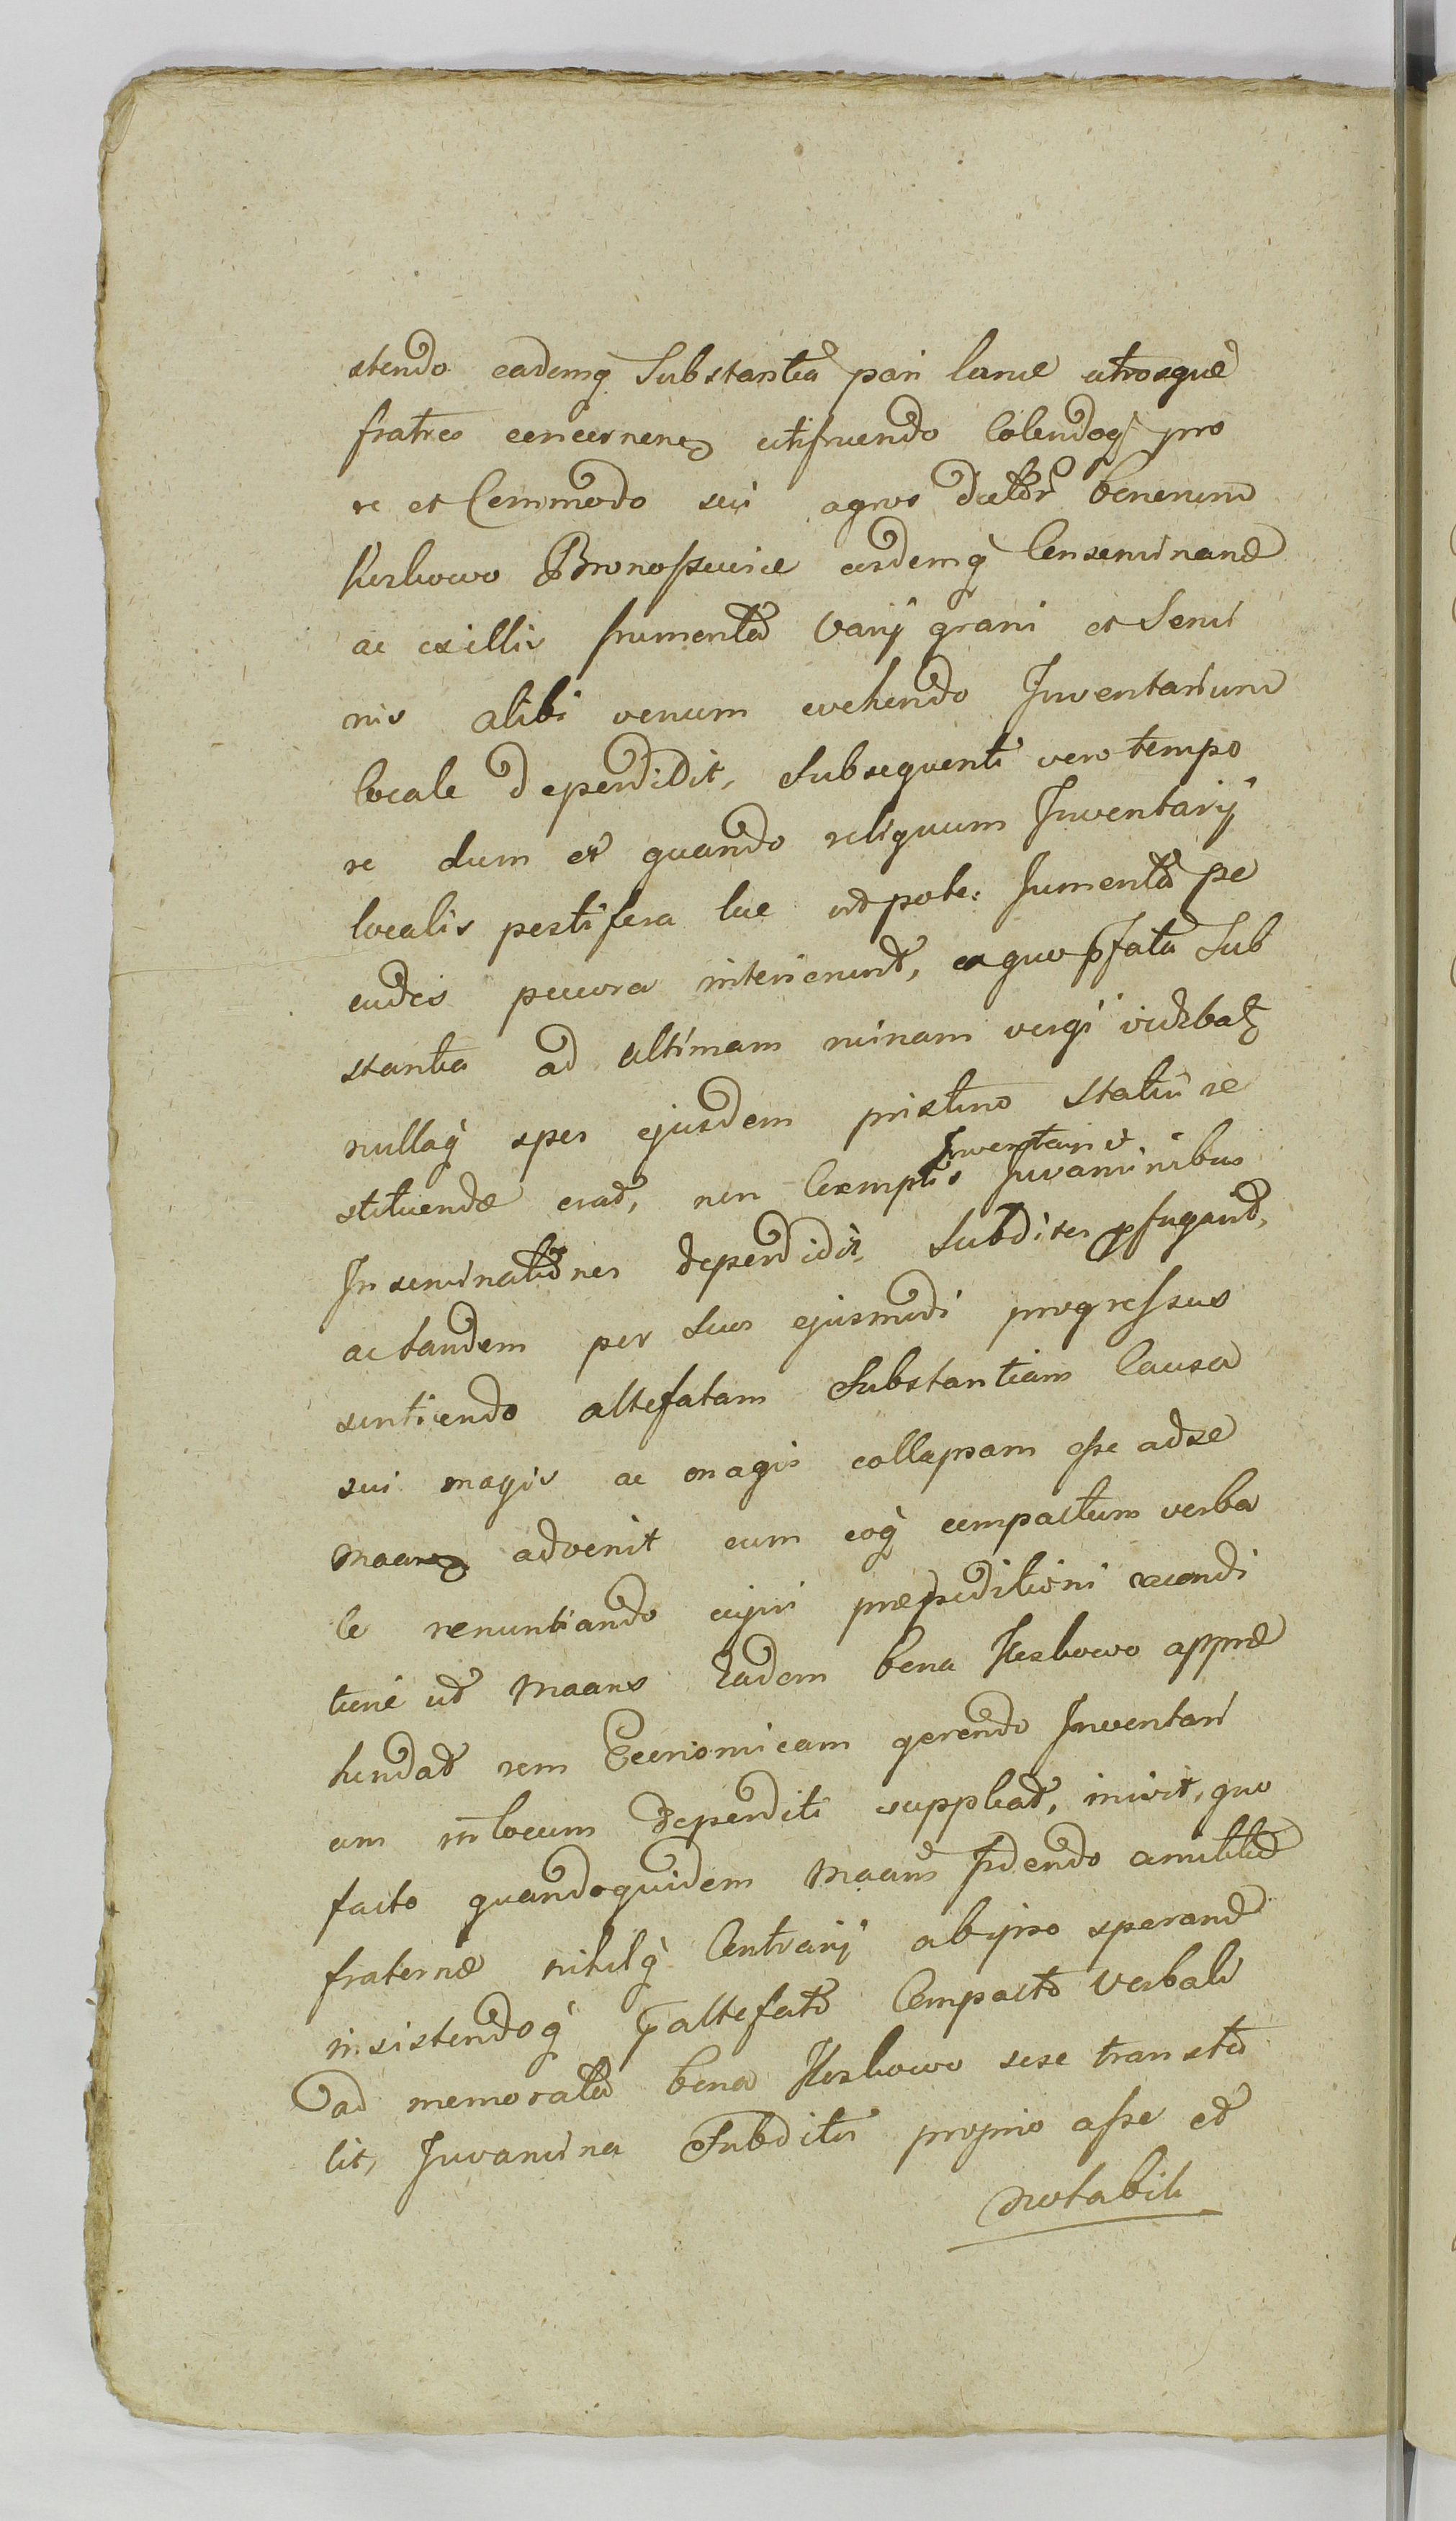 stendo eademq̀ Substantia pari lance utrosque
fratres concernen utifruendo Colendoq̀ pro
re et Commodo sui agros dictor bonorum
Keskowo Bronoszewice eosdemq̀ Conseminand
ac ex illis frumenta Varij grani et Semi
nis alibi venum evehendo Inventarium
locale deperdidit, Subsequenti vero tempo
re dum et quando reliquum Inventarij
localis pestifera lue utpote: Jumenta pe
cudes pecora interierunt, ex quo pfata Sub
stantia ad ultimam ruinam vergi videbat
nullaq̀ spes ejusdem pristino Statui re
stituendæ erat, non Comptis Inventarij Juvaminibus
Inseminationes deperdidit, Subditos pfugavit,
ac tandem per suos ejusmodi progressus
sentiendo altefatam Substantiam Causa
sui magis ac magis collapsam esse ad se
Maan advenit cum eoq̀ compactum verba
le renuntiando cujvi præpeditioni
tuni ut Maans Eadem bona Keskowo appræ
hendat rem Oeconomicam gerendo Inventari
um in locum deperditi suppleat, inivit, quo
facto quandoquidem Maans fidendo amicitiæ
fraternæ nihilq̀ Contrarij ab ipso sperand
insistendoq̀ altefato Compacto Verbali
ad memorata bona Keskowo sese transtu
lit, Juvamina Subditis proprio asse et
notabili